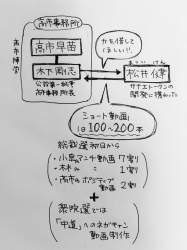 高市事務所
高市陣営
高市早苗
木下剛志
公設第一秘書
高市事務所長
力を借して
ほしい!!
まつい けん
松井健
サナエトークンの
開発に携わった
ショート動画
1日100~200本
総裁選初日から
・小泉アンチ動画 7割
・林 〃 〃 1割
・高市のポジティブ
動画 2割
+
衆院選では
「中道」へのネガキャン
動画制作